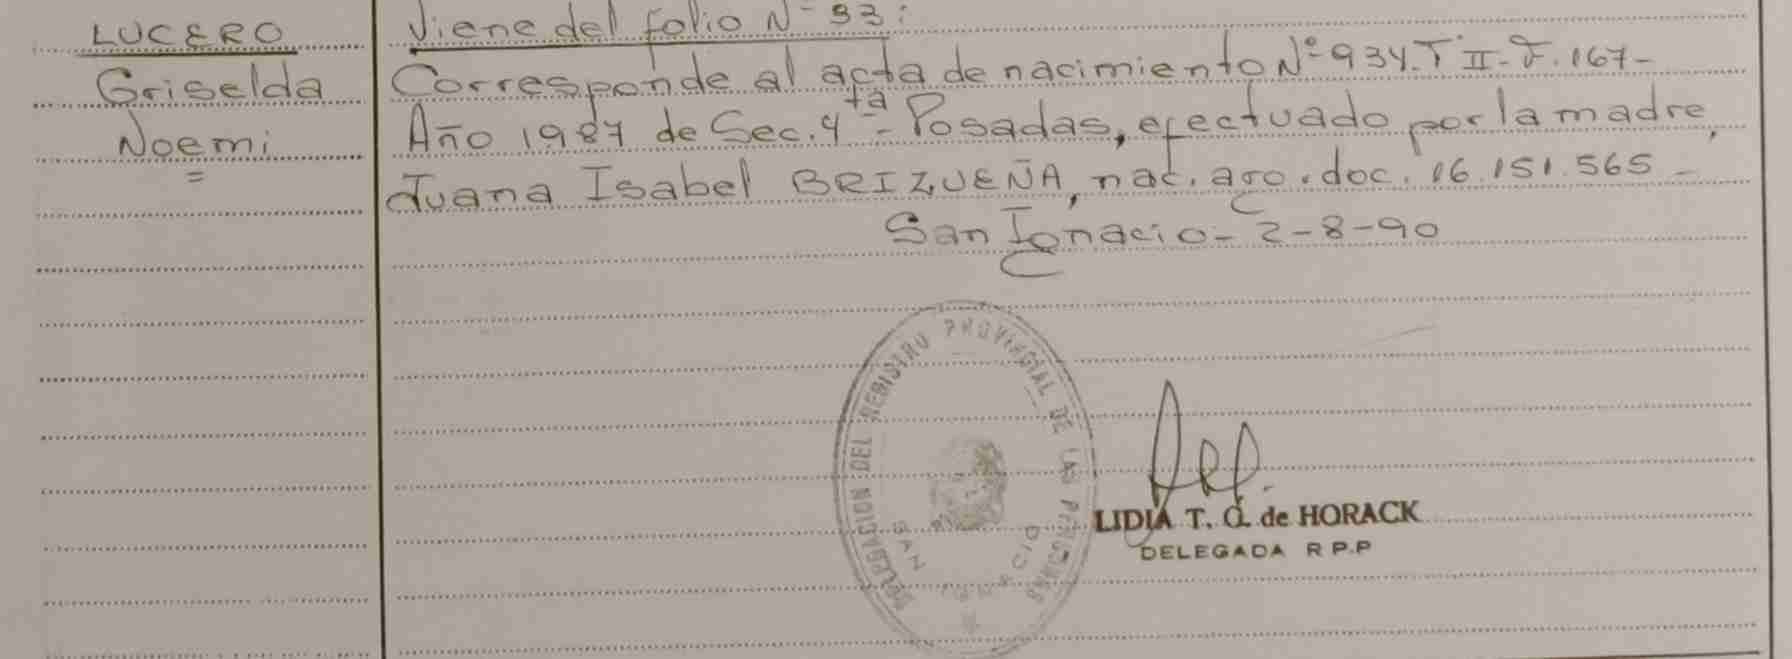 LUCERO
Griselda
Noemi
Viene del folio Nº 93:
Corresponde al acta de nacimiento Nº 934.T II-F.167-
Año 1987 de Sec. 4ta - Posadas, efectuado por la madre,
Juana Isabel BRIZUEÑA, nac. arg. doc. 16.151.565-
San Ignacio - 2-8-90
DELEGACION DEL REGISTRO PROVINCIAL DE LAS PERSONAS
SAN IGNACIO
LIDIA T. G. de HORACK
DELEGADA R P.P